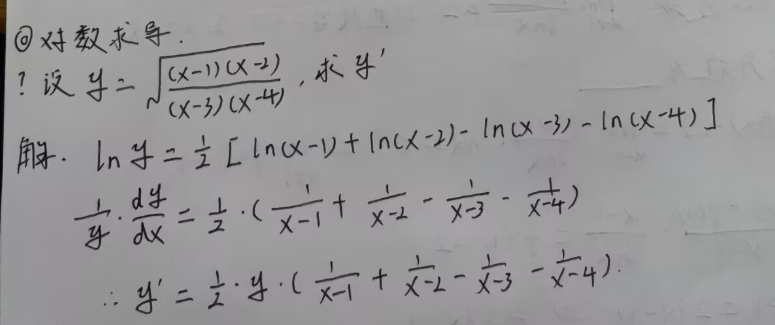 ◎对数求导.
? 设 y = √((x-1)(x-2)/(x-3)(x-4)), 求 y′
解. ln y = 1/2 [ ln(x-1) + ln(x-2) - ln(x-3) - ln(x-4) ]
1/y · dy/dx = 1/2 · ( 1/(x-1) + 1/(x-2) - 1/(x-3) - 1/(x-4) )
∴ y′ = 1/2 · y · ( 1/(x-1) + 1/(x-2) - 1/(x-3) - 1/(x-4) ).